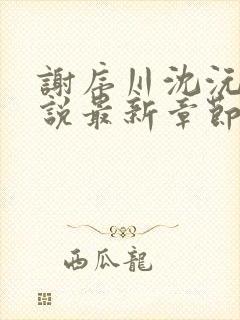 謝辰川沈沅
說最新章節
西瓜龍